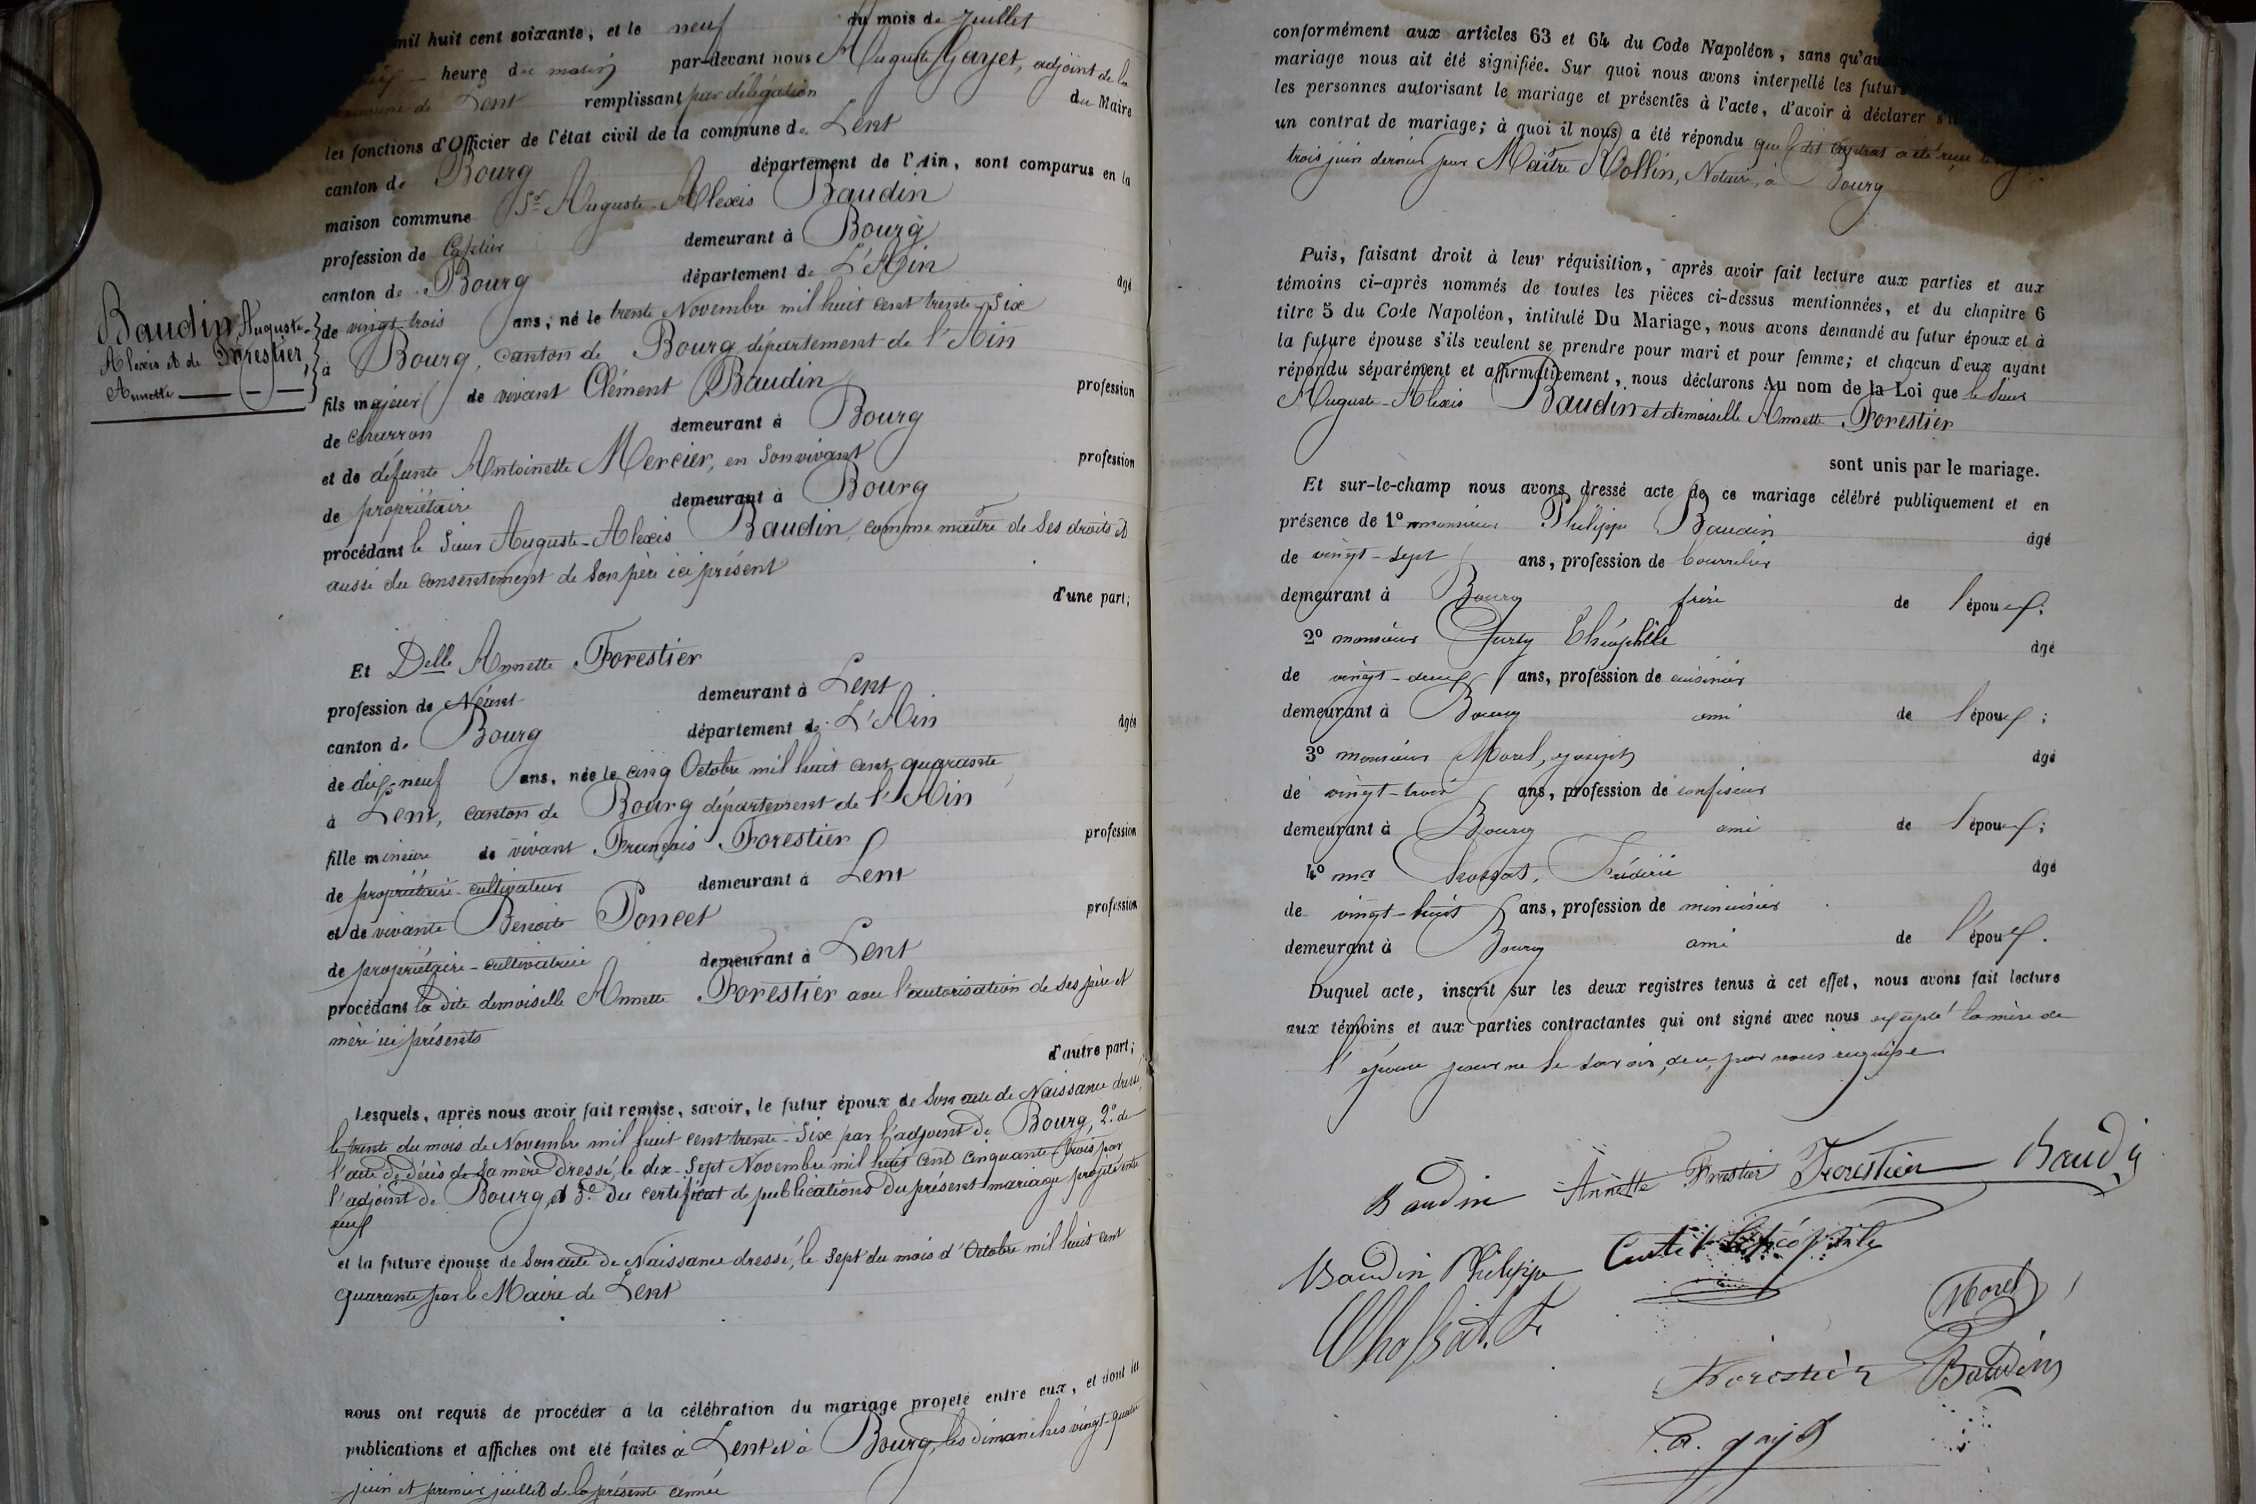 mil huit cent soixante, et le neuf du mois de Juillet
heure du matin par-devant nous Auguste Gayet, adjoint de la
commune de Lent remplissant par délégation du Maire
les fonctions d'Officier de l'état civil de la commune de Lent
canton de Bourg département de l'Ain, sont comparus en la
maison commune Sr Auguste-Alexis Baudin
profession de Cafetier demeurant à Bourg
canton de Bourg département de L'Ain âgé
de vingt-trois ans, né le trente Novembre mil huit cent trente-Six
à Bourg, canton de Bourg département de l'Ain
fils majeur de vivant Clément Baudin profession
de charron demeurant à Bourg
et de défunte Antoinette Mercier, en Son vivant profession
de propriétaire demeurant à Bourg
procédant le Sieur Auguste-Alexis Baudin, comme maître de Ses droits et
aussi du consentement de Son père ici présent
d'une part;
Baudin, Auguste-
Alexis et de Forestier,
Annette
Et Delle Annette Forestier
profession de Néant demeurant à Lent
canton de Bourg département de L'Ain âgée
de dix-neuf ans, née le cinq Octobre mil huit cent quarante
à Lent, canton de Bourg département de l'Ain
fille mineure de vivant François Forestier profession
de propriétaire-cultivateur demeurant à Lent
et de vivante Benoite Poncet profession
de propriétaire-cultivatrice demeurant à Lent
procédant la dite demoiselle Annette Forestier avec l'autorisation de Ses père et
mère ici présents
d'autre part;
Lesquels, après nous avoir fait remise, savoir, le futur époux de Son acte de Naissance dressé,
le trente du mois de Novembre mil huit cent trente-Six par l'adjoint de Bourg, 2º de
l'acte de décès de Sa mère dressé, le dix-Sept Novembre mil huit cent cinquante-trois par
l'adjoint de Bourg, et 3º du certificat de publications du présent mariage projeté entre
eux
et la future épouse de Son acte de Naissance dressé, le Sept du mois d'Octobre mil huit cent
quarante par le Maire de Lent
nous ont requis de procéder à la célébration du mariage projeté entre eux, et dont les
publications et affiches ont été faites à Lent et à Bourg, les dimanches vingt-quatre
juin et premier juillet de la présente année
conformément aux articles 63 et 64 du Code Napoléon, sans qu'au
mariage nous ait été signifiée. Sur quoi nous avons interpellé les futurs
les personnes autorisant le mariage et présentes à l'acte, d'avoir à déclarer s'il
un contrat de mariage; à quoi il nous a été répondu que dit contrat a été reçu le
trois juin dernier par Maître Rollin, Notaire, à Bourg
Puis, faisant droit à leur réquisition, après avoir fait lecture aux parties et aux
témoins ci-après nommés de toutes les pièces ci-dessus mentionnées, et du chapitre 6
titre 5 du Code Napoléon, intitulé Du Mariage, nous avons demandé au futur époux et à
la future épouse s'ils veulent se prendre pour mari et pour femme; et chacun d'eux ayant
répondu séparément et affirmativement, nous déclarons Au nom de la Loi que le Sieur
Auguste-Alexis Baudin et demoiselle Annette Forestier
sont unis par le mariage.
Et sur-le-champ nous avons dressé acte de ce mariage célébré publiquement et en
présence de 1º monsieur Philippe Baudin âgé
de vingt-sept ans, profession de bourrelier
demeurant à Bourg frère de l'époux;
2º monsieur Théophile âgé
de vingt-deux ans, profession de cuisinier
demeurant à Bourg ami de l'époux;
3º monsieur Morel, Joseph âgé
de vingt-trois ans, profession de confiseur
demeurant à Bourg ami de l'époux;
4º mr Frédéric âgé
de vingt-huit ans, profession de menuisier
demeurant à Bourg ami de l'époux.
Duquel acte, inscrit sur les deux registres tenus à cet effet, nous avons fait lecture
aux témoins et aux parties contractantes qui ont signé avec nous excepté la mère de
l'épouse pour ne le savoir, de ce, par nous requise
Baudin Annette Frestier Forestier Baudin
Baudin Philippe
Chossat. F. Morel
Forestier Baudin
gayet